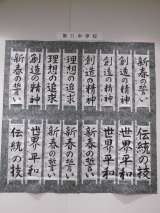 中学校
新春の誓い
創造の精神
創造の精神
創造の精神
理想の追求
理想の追求
創造の精神
新春の誓い
伝統の技
世界平和
世界平和
新春の誓い
新春の誓い
新春の誓い
世界平和
伝統の技